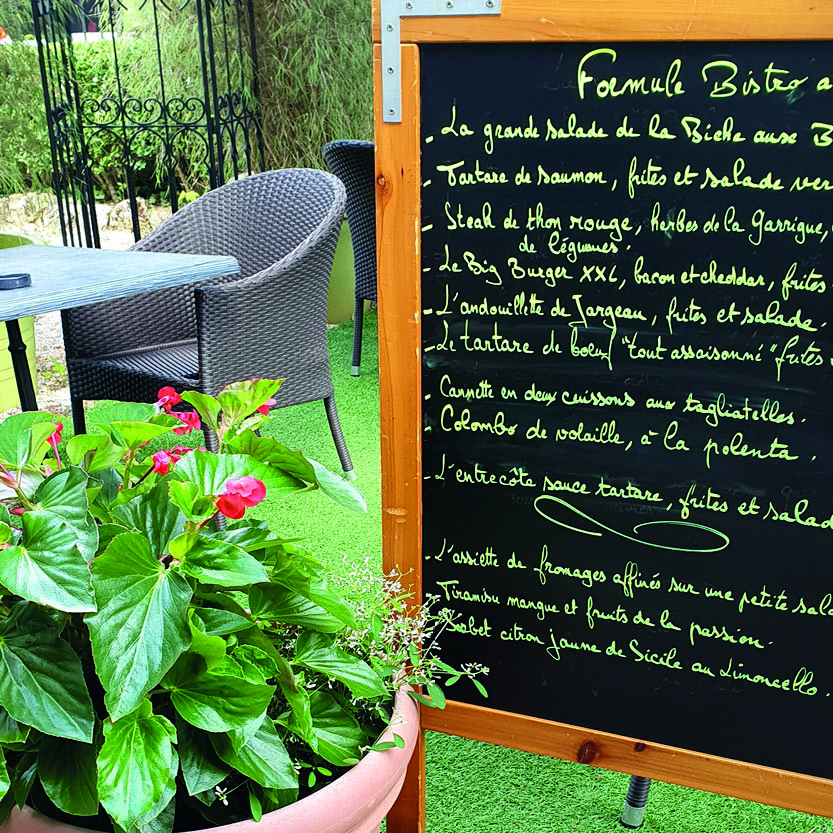 Formule Bistro a
- La grande salade de la Biche aux B
- Tartare de saumon, frites et salade ver
- Steak de thon rouge, herbes de la Garrigue,
de légumes.
- Le Big Burger XXL, bacon et cheddar, frites
- L'andouillette de Jargeau, frites et salade.
- Le tartare de boeuf "tout assaisonné" frites
- Cannette en deux cuissons aux tagliatelles.
- Colombo de volaille, à la polenta.
- L'entrecôte sauce tartare, frites et salad
- L'assiette de fromages affinés sur une petite sala
- Tiramisu mangue et fruits de la passion.
- Sorbet citron jaune de Sicile au Limoncello.